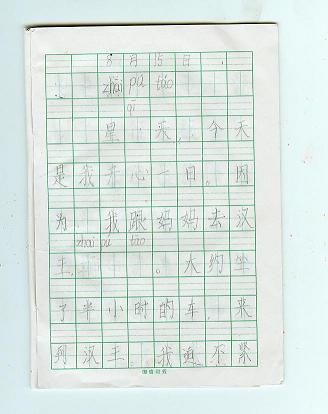 8月15日
zhāi pú táo
qī
星 ，今天
是我 心一日。因
为，我跟妈妈去汉
zhāi pú táo
王 。大约坐
了半小时的车，来
到汉王，我迫不紧